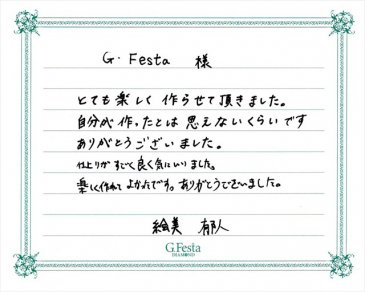 G・Festa 様
とても楽しく作らせて頂きました。
自分が作ったとは思えないくらいです
ありがとうございました。
仕上りがすごく良く気にいりました。
楽しく作れてよかったです。ありがとうございました。
絵美 郁人
G.Festa
DIAMOND